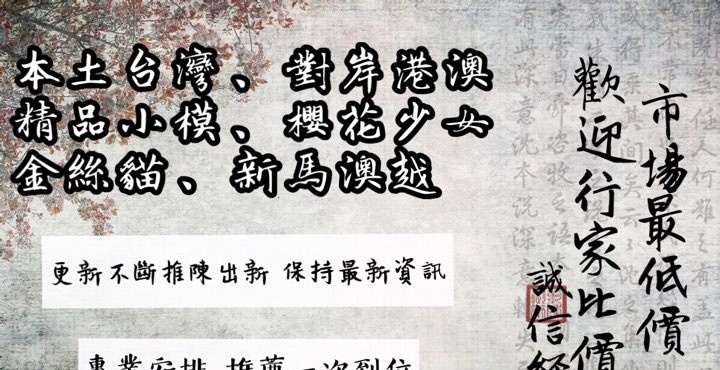 本土台灣、對岸港澳
精品小模、櫻花少女
金絲貓、新馬澳越
更新不斷推陳出新 保持最新資訊
專業安排 推薦一次到位
市場最低價
歡迎行家比價
誠信經